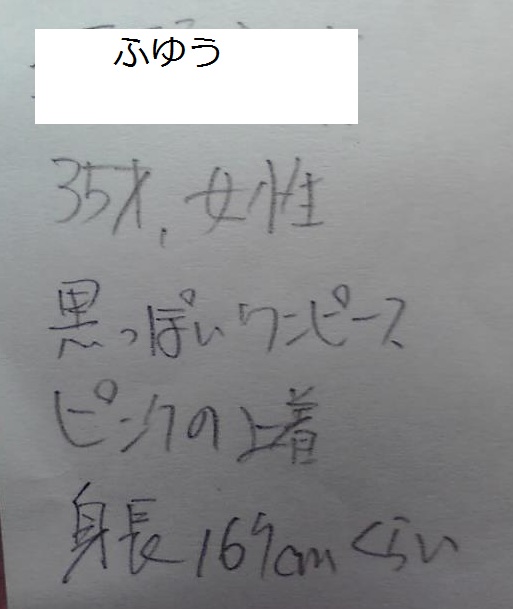 ふゆう
35才，女性
黒っぽいワンピース
ピンクの上着
身長169cmくらい